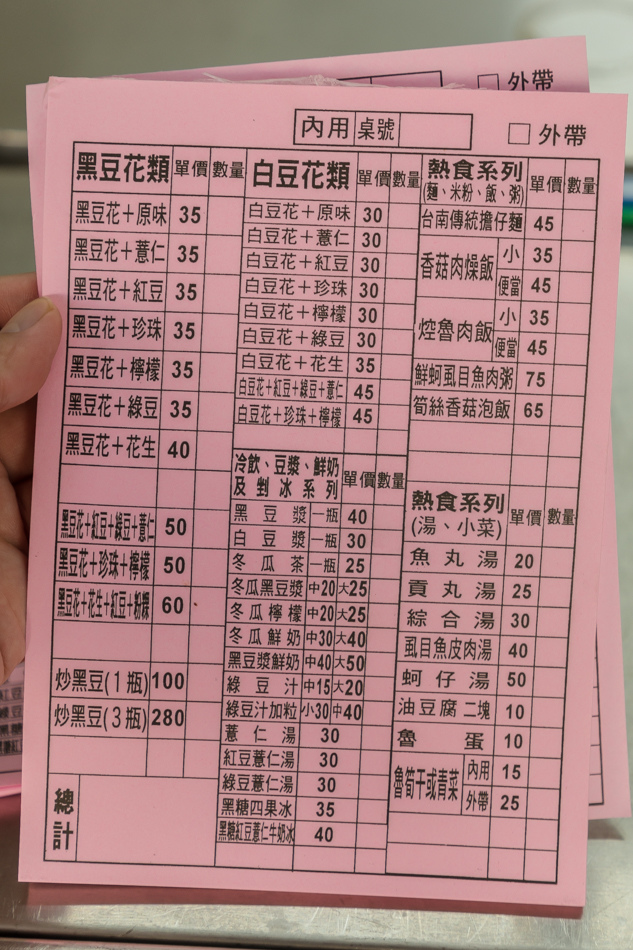 外帶
內用 桌號 □ 外帶
黑豆花類 單價 數量
黑豆花＋原味 35
黑豆花＋薏仁 35
黑豆花＋紅豆 35
黑豆花＋珍珠 35
黑豆花＋檸檬 35
黑豆花＋綠豆 35
黑豆花＋花生 40
黑豆花＋紅豆＋綠豆＋薏仁 50
黑豆花＋珍珠＋檸檬 50
黑豆花＋花生＋紅豆＋粉粿 60
炒黑豆(1瓶) 100
炒黑豆(3瓶) 280
總計
白豆花類 單價 數量
白豆花＋原味 30
白豆花＋薏仁 30
白豆花＋紅豆 30
白豆花＋珍珠 30
白豆花＋檸檬 30
白豆花＋綠豆 30
白豆花＋花生 35
白豆花＋紅豆＋綠豆＋薏仁 45
白豆花＋珍珠＋檸檬 45
冷飲、豆漿、鮮奶
及剉冰系列 單價 數量
黑豆漿 一瓶 40
白豆漿 一瓶 30
冬瓜茶 一瓶 25
冬瓜黑豆漿 中20 大25
冬瓜檸檬 中20 大25
冬瓜鮮奶 中30 大40
黑豆漿鮮奶 中40 大50
綠豆汁 中15 大20
綠豆汁加粒 小30 中40
薏仁湯 30
紅豆薏仁湯 30
綠豆薏仁湯 30
黑糖四果冰 35
黑糖紅豆薏仁牛奶冰 40
熱食系列
(麵、米粉、飯、粥) 單價 數量
台南傳統擔仔麵 45
香菇肉燥飯 小 35
便當 45
焢魯肉飯 小 35
便當 45
鮮蚵虱目魚肉粥 75
筍絲香菇泡飯 65
熱食系列
(湯、小菜) 單價 數量
魚丸湯 20
貢丸湯 25
綜合湯 30
虱目魚皮肉湯 40
蚵仔湯 50
油豆腐 二塊 10
魯蛋 10
魯筍干或青菜 內用 15
外帶 25